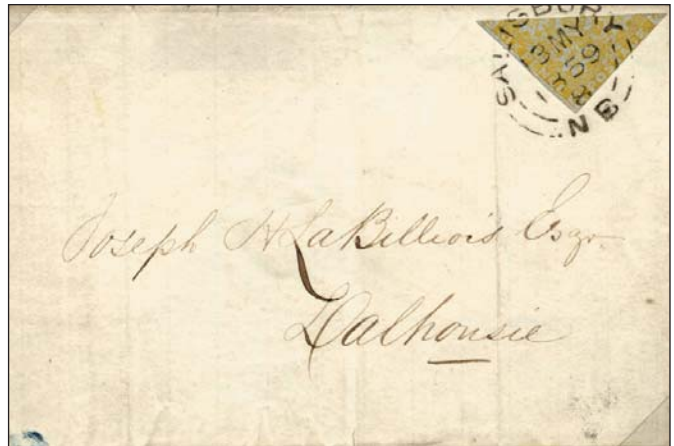 SALISBURY
MY
3
1859
N.B
Joseph H LaBillois Esqr
Dalhousie